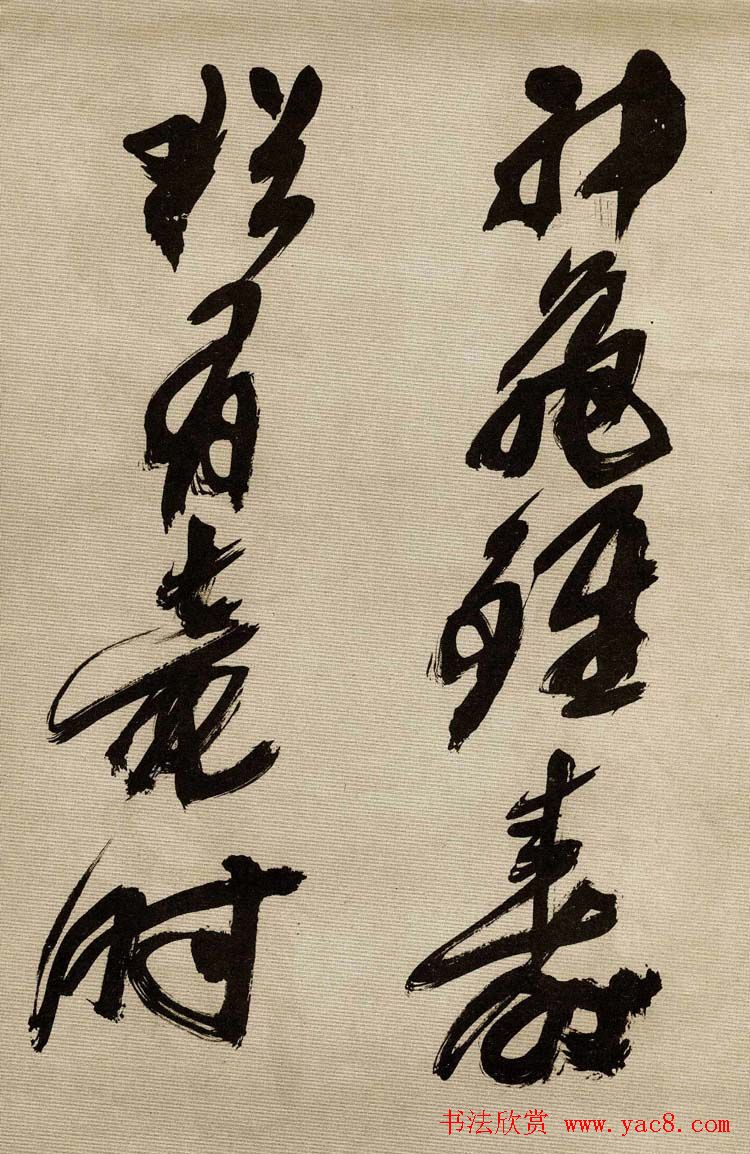 神龜雖壽
猶有竟时
书法欣赏 www.yac8.com